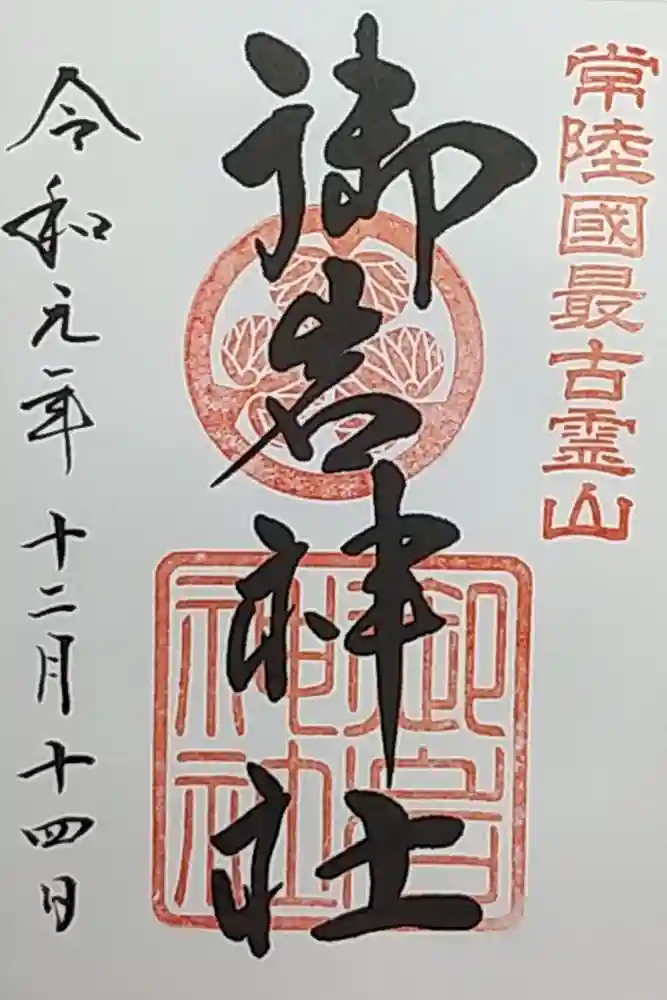 常陸國最古霊山
御岩神社
御岩神社
令和元年十二月十四日